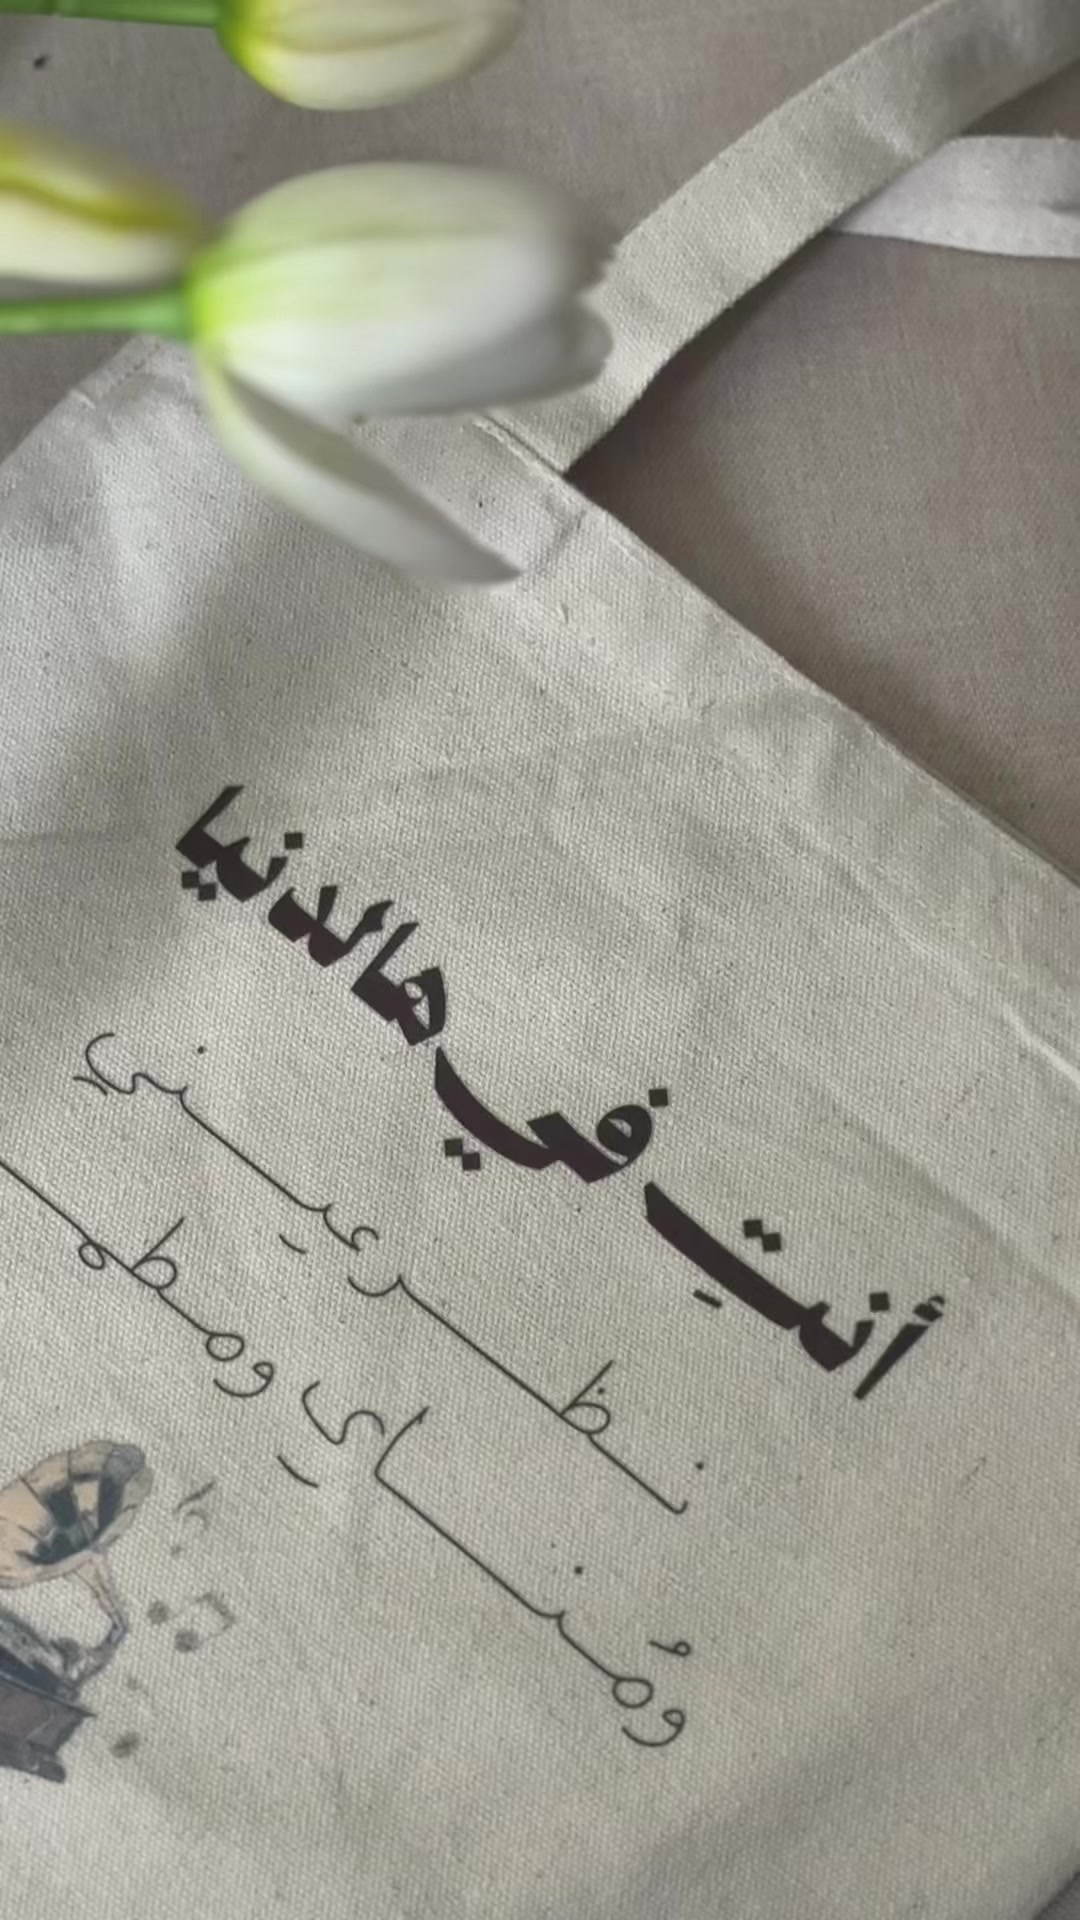 أنتِ في هالدنيا
نظر عيني
ومُناي